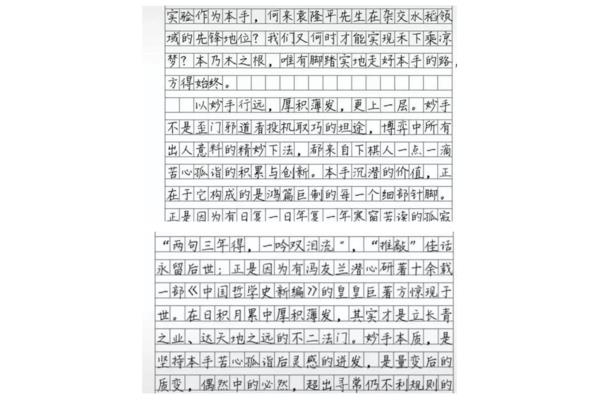 实验作为本手，何来袁隆平先生在杂交水稻领
域的先锋地位？我们又何时才能实现禾下乘凉
梦？本乃木之根，唯有脚踏实地走好本手的路，
方得始终。
以妙手行远，厚积薄发，更上一层。妙手
不是歪门邪道者投机取巧的坦途，博弈中所有
出人意料的精妙下法，都来自下棋人一点一滴
苦心孤诣的积累与创新。本手沉潜的价值，正
在于它构成的是鸿篇巨制的每一个细部针脚。
正是因为有日复一日年复一年寒窗苦读的孤寂
“两句三年得，一吟双泪流”，“推敲”佳话
永留后世；正是因为有冯友兰潜心研著十余载
一部《中国哲学史新编》的皇皇巨著方惊现于
世。在日积月累中厚积薄发，其实才是立长青
之业、达天地之远的不二法门。妙手本质，是
坚持本手苦心孤诣后灵感的迸发，是量变后的
质变，偶然中的必然，超出寻常仍不利规则的